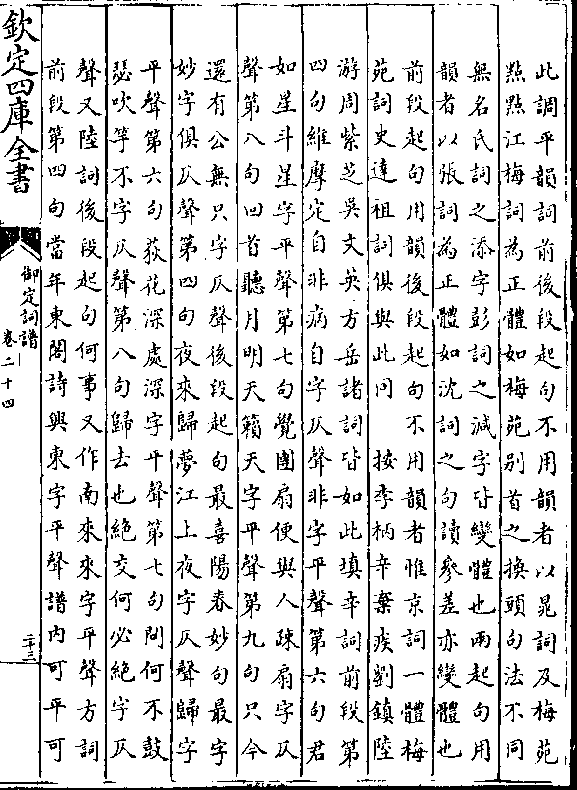 此調平韻詞前後段起句不用韻者以晁詞及梅苑
㸃㸃江梅詞為正體如梅苑别首之換頭句法不同
無名氏詞之添字彭詞之減字皆變體也兩起句用
韻者以張詞為正體如沈詞之句讀參差亦變體也
前段起句用韻後段起句不用韻者惟京詞一體梅
苑詞史達祖詞俱與此同　按李柄辛棄疾劉鎮陸
游周紫芝吳文英方岳諸詞皆如此填辛詞前段第
四句維摩定自非病自字仄聲非字平聲第六句君
如星斗星字平聲第七句覺團扇便與人疎扇字仄
聲第八句回首聽月明天籟天字平聲第九句只今
還有公無只字仄聲後段起句最喜陽春妙句最字
妙字俱仄聲第四句夜來歸夢江上夜字仄聲歸字
平聲第六句荻花深處深字平聲第七句問何不鼓
瑟吹竽不字仄聲第八句歸去也絶交何必絶字仄
聲又陸詞後段起句何事又作南來來字平聲方詞
前段第四句當年東閣詩興東字平聲譜内可平可
欽定四庫全書
御定詞譜
卷二十四
三十三